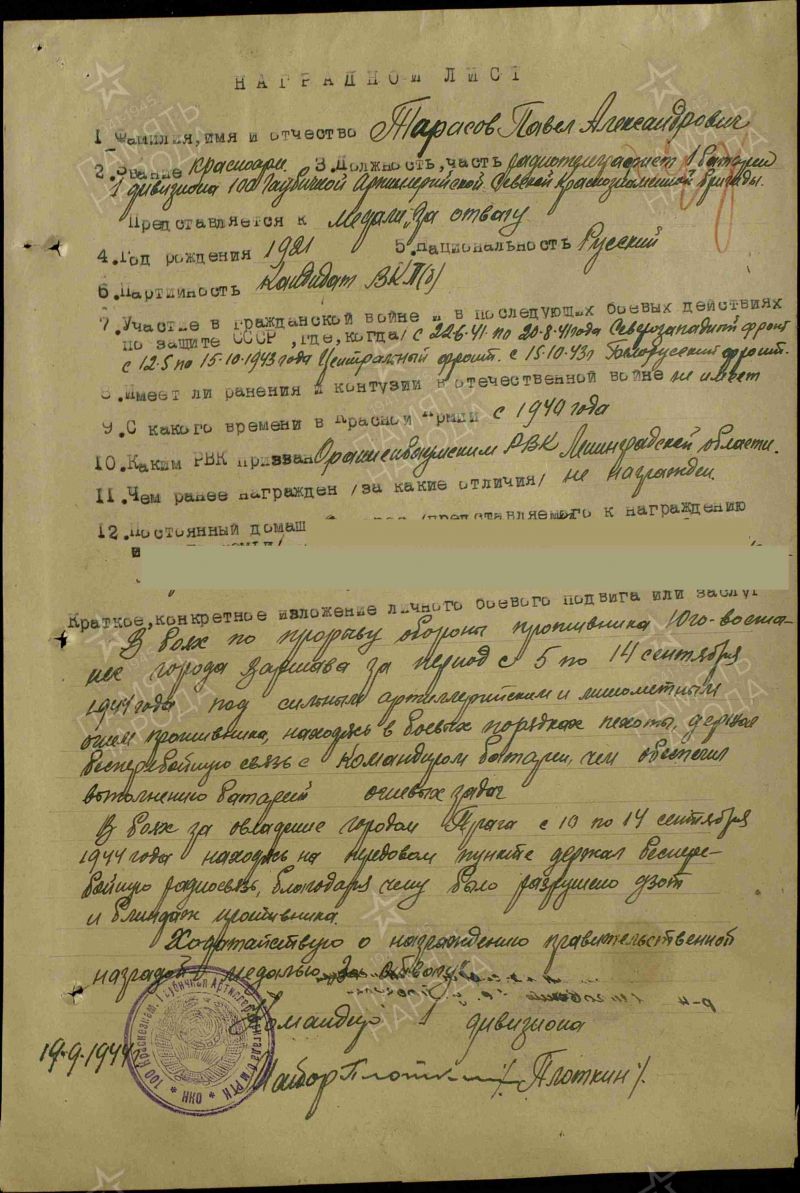 НАГРАДНОЙ ЛИСТ
1. Фамилия, имя и отчество Тарасов Павел Александрович
2. Звание красноарм. 3. Должность, часть радиотелеграфист 1 батареи
1 дивизиона 100 Гаубичной Артиллерийской Севской Краснознаменной бригады.
Представляется к медали "За отвагу
4. Год рождения 1921 5. Национальность Русский
6. Партийность Кандидат ВКП(б)
7. Участие в гражданской войне и в последующих боевых действиях
по защите СССР, где, когда/ с 22-6-41 по 20-8-41 года Северозападный фронт
с 12-5 по 15-10-1943 года Центральный фронт. с 15-10-43г Белорусский фронт.
8. Имеет ли ранения и контузии в отечественной войне не имеет
9. С какого времени в Красной Армии с 1940 года
10. Каким РВК призван Ораниенбаумским РВК Ленинградской области.
11. Чем ранее награжден /за какие отличия/ не награжден.
12. Постоянный домаш /представляемого к награждению
и
Краткое, конкретное изложение личного боевого подвига или заслуг
В боях по прорыву обороны противника Юго-восто-
нее города Варшава за период с 5 по 14 сентября
1944 года под сильным артиллерийским и минометным
огнем противника, находясь в боевых порядках пехоты, держал
бесперебойную связь с командиром батареи, чем обеспечил
выполнению батареей огневых задач
В боях за овладение городом Прага с 10 по 14 сентября
1944 года находясь на передовом пункте держал беспере-
бойную радиосвязь, благодаря чему было разрушено дзот
и блиндаж противника.
Ходатайствую о награждению правительственной
наградой медалью "За отвагу"
Командир дивизиона
19.9.1944г
Майор Плоткин /Плоткин/.